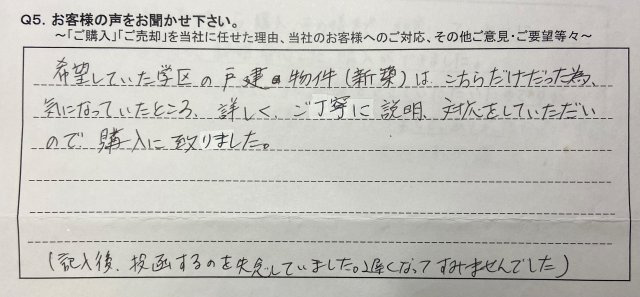 Q5. お客様の声をお聞かせ下さい。
～「ご購入」「ご売却」を当社に任せた理由、当社のお客様へのご対応、その他ご意見・ご要望等々～
希望していた学区の戸建物件(新築)は、こちらだけだった為、
気になっていたところ、詳しく、ご丁寧に説明、対応をしていただい
ので購入に致りました。
(記入後、投函するのを失念していました。遅くなってすみませんでした)